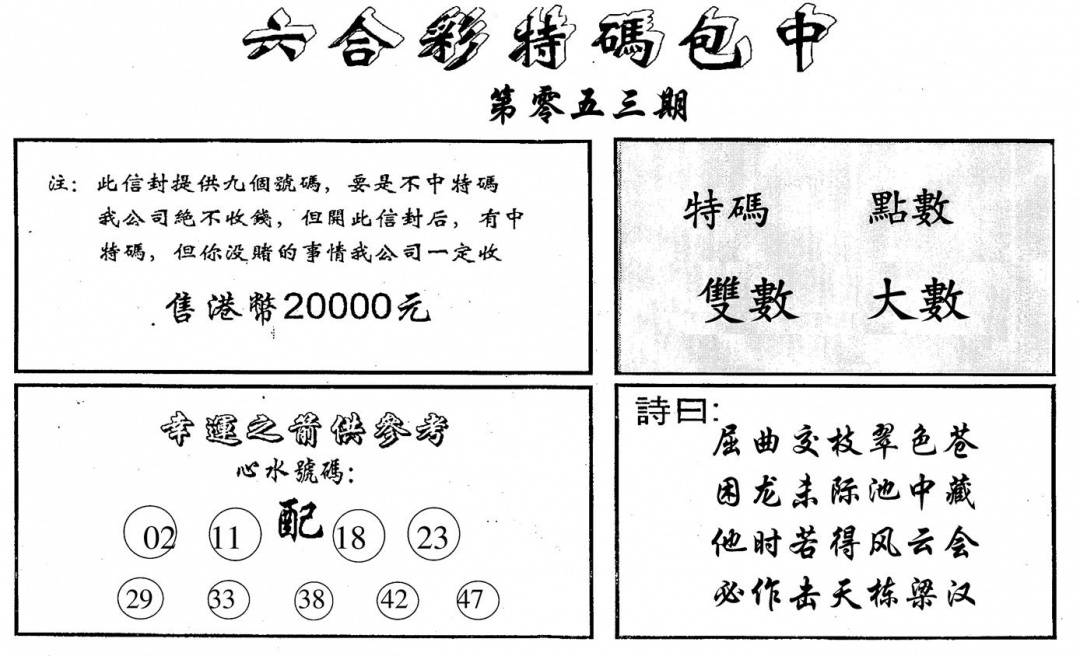 六合彩特碼包中
第零五三期
注：此信封提供九個號碼，要是不中特碼
我公司絕不收錢，但開此信封后，有中
特碼，但你没賭的事情我公司一定收
售港幣20000元
特碼 點數
雙數 大數
幸運之箭供參考
心水號碼：
配
02 11 18 23
29 33 38 42 47
詩曰：
屈曲交枝翠色苍
困龙未际池中藏
他时若得风云会
必作击天栋梁汉